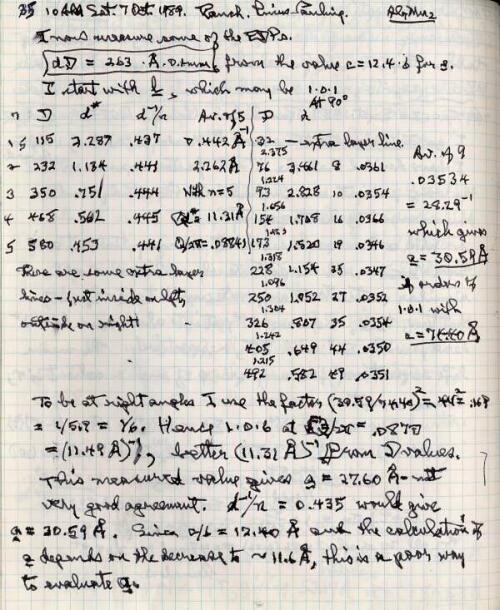 10 AM Sat. 7 Oct 1989. Ranch. Linus Pauling. Al₆Mn₂
I now measure some of the EDPs.
dD = 263 · Å · 0.1mm, from the value c = 12.4 · 6 for g.
I start with b, which may be 1.0.1
At 90°
n D d* d⁻¹/n Av. of 5 D d
1 115 2.287 .437 0.442 Å⁻¹ 32 — extra layer line.
2.375
2 232 1.134 .441 2.262 Å 76 3.461 8 .0361 Av. of 9
1.224
3 350 .751 .444 With n=5 93 2.828 10 .0354 .03534
1.656
4 468 .562 .445 11.31 Å 154 1.708 16 .0366 = 28.29⁻¹
5 580 .453 .441 173 1.520 19 .0346 which gives
1.318
There are some extra layer 228 1.154 25 .0347 a = 30.59 Å
1.096
lines – just inside on left, 250 1.052 27 .0352 in order to
1.304
outside on right! 326 .807 35 .0354 1.0.1 with
1.242
405 .649 44 .0350
1.215
492 .582 49 .0351
To be at right angles I use the factor
= 1/5.9 = 1/6. Hence 1.0.6 at .0870
= (11.49 Å)⁻¹, better (11.31 Å)⁻¹ from D values.
This measured value gives a = 27.60 Å – not
very good agreement. d⁻¹/n = 0.435 would give
a = 30.59 Å. Since c/6 = 12.40 Å and the calculation of
a depends on the decrease to ~ 11.6 Å, this is a poor way
to evaluate a.